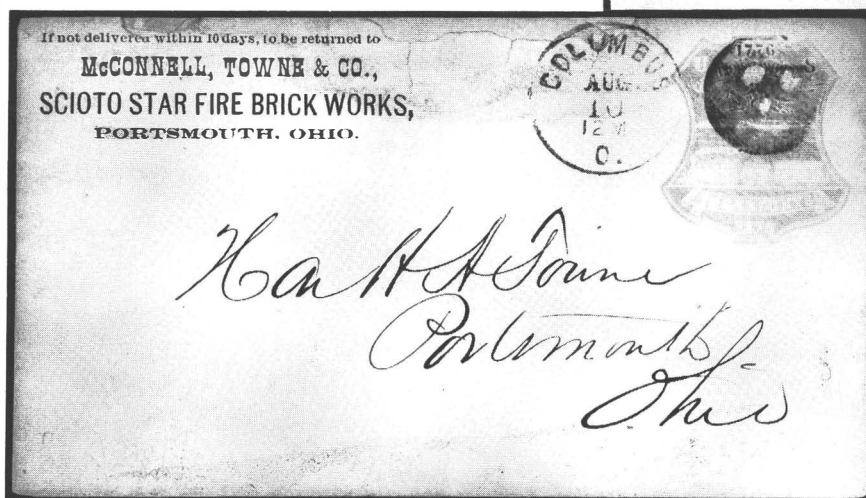 If not delivered within 10 days, to be returned to
McCONNELL, TOWNE & CO.,
SCIOTO STAR FIRE BRICK WORKS,
PORTSMOUTH, OHIO.
COLUMBUS
AUG
10
12 M
O.
1776
Hon H A Towne
Portsmouth
Ohio